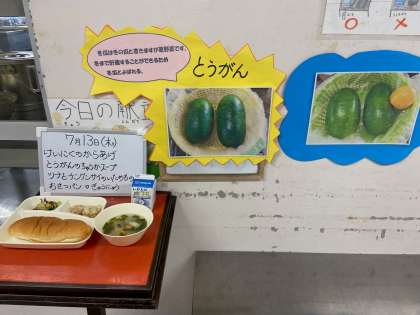 冬瓜は冬の瓜と書きますが夏野菜です。
冬まで貯蔵することができるため
冬瓜とよばれる。
とうがん
今日の献立
7月13日(木)
けいにくのからあげ
とうがんのちゅうかスープ
ツナとクーブンサイのいためもの
おさつパン ぎゅうにゅう